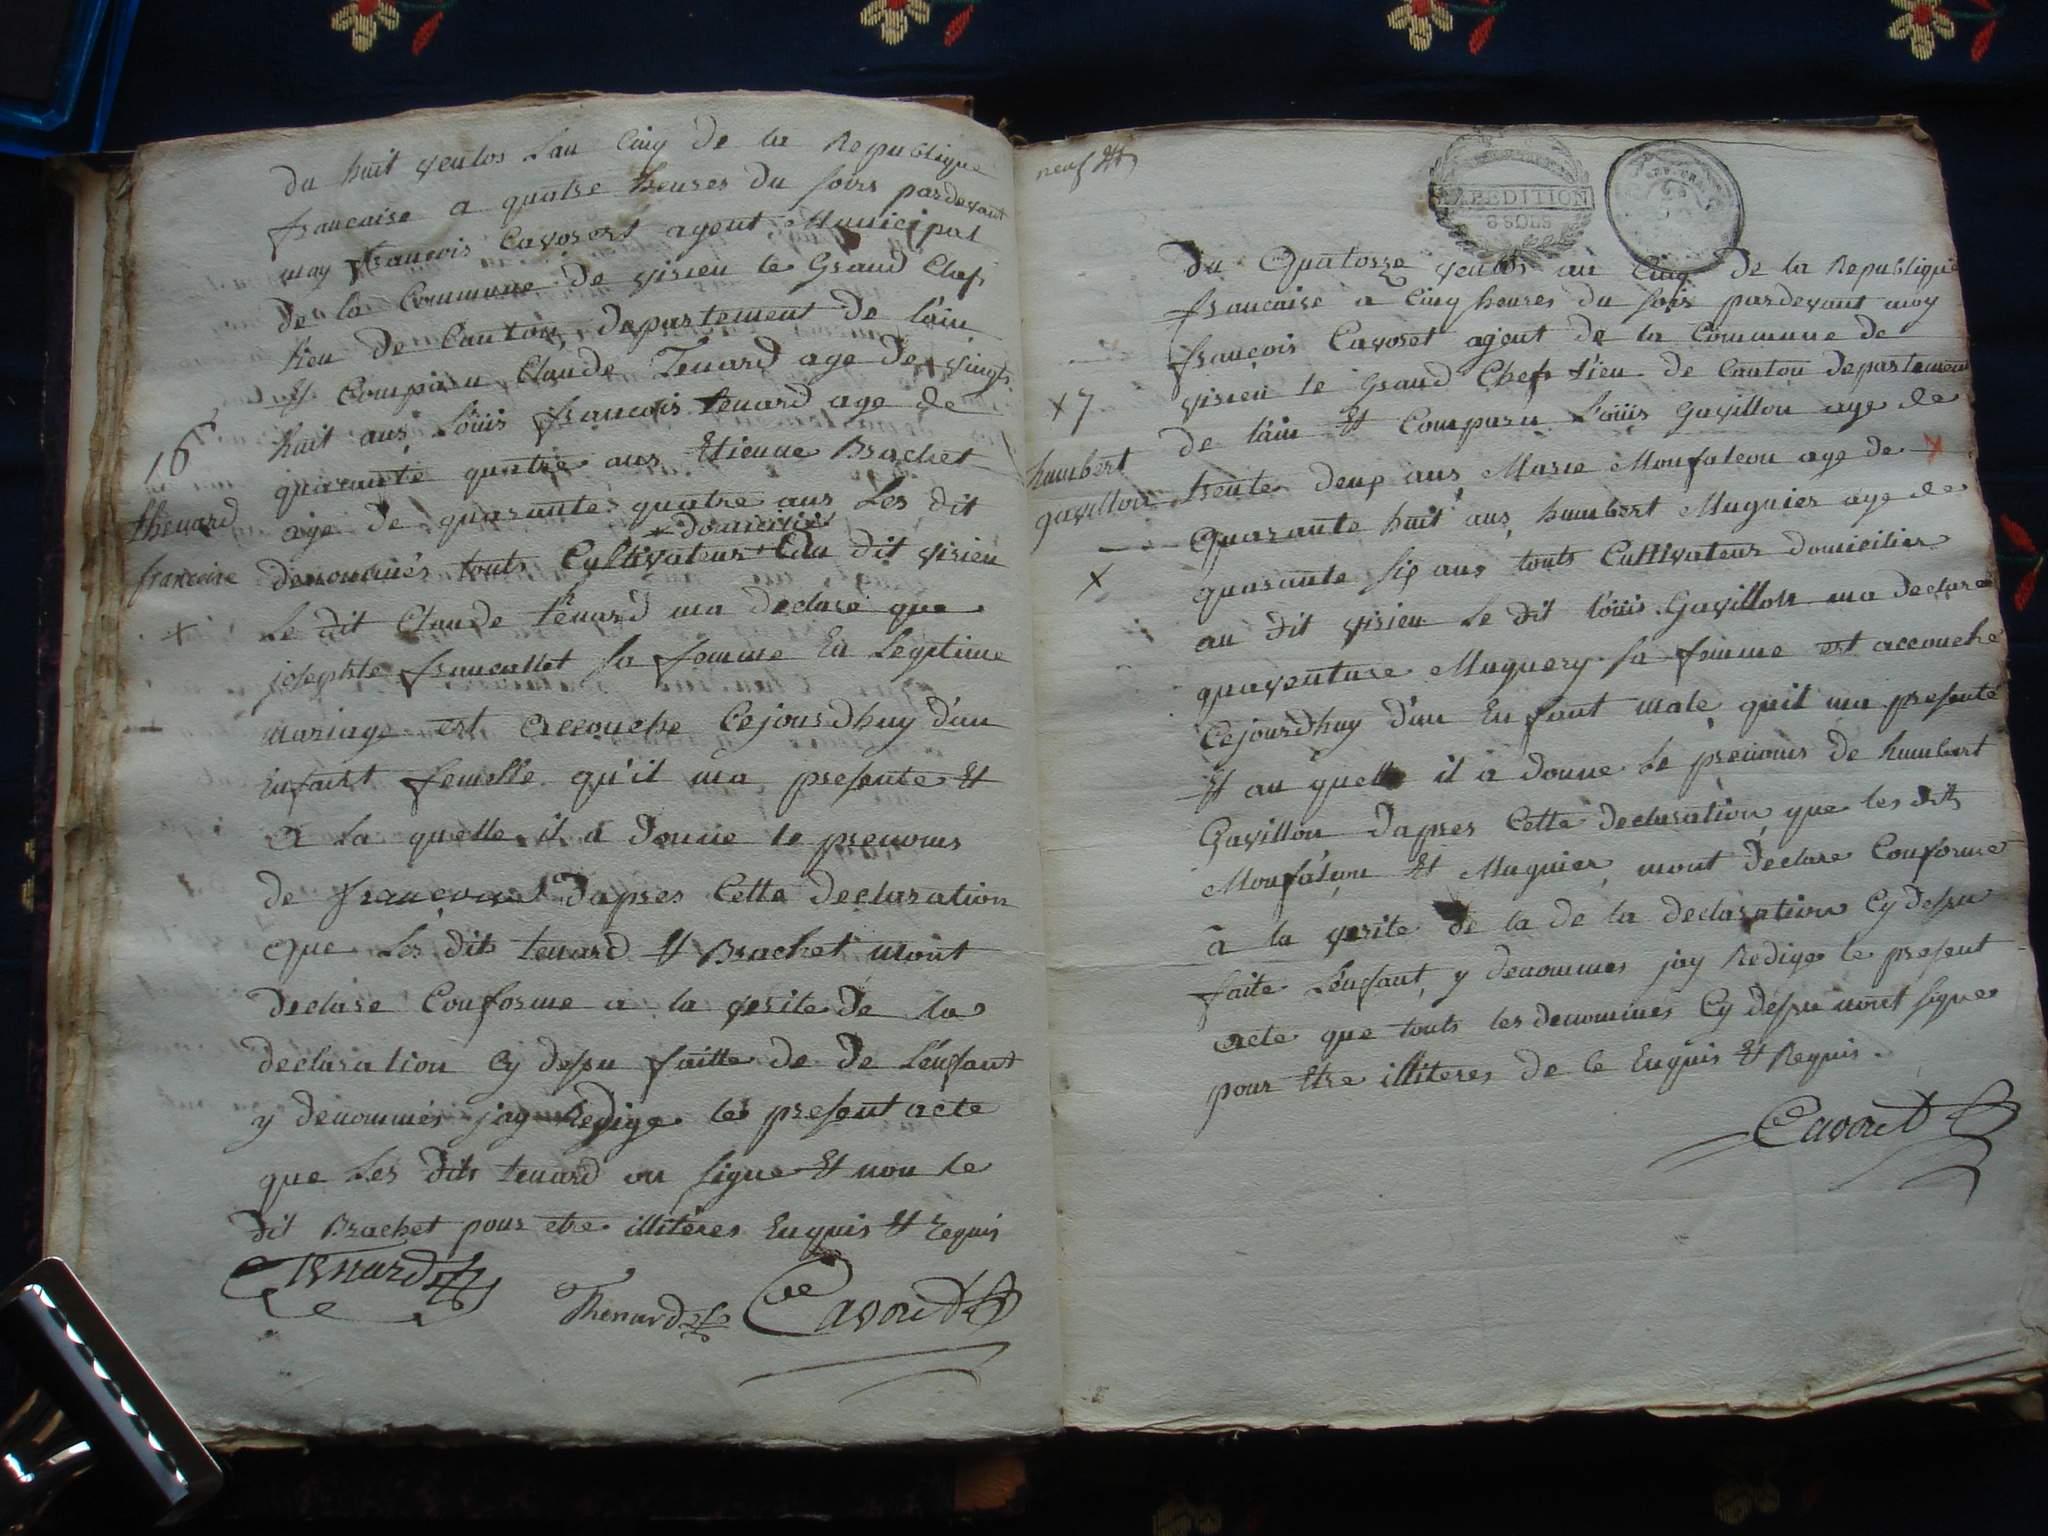 du huit ventos Lan Cinq de la Republique
francaise a quatre heures du soirs pardevant
moy francois Cavoret agent Municipal
de la Commune de virieu le Grand Chef
lieu de Canton departement de l'ain
Et Comparu Claude Tenard age de vingt
huit ans Loüis francois tenard age de
quarante quatre ans Etienne Brachet
age de quarante quatre ans Les dit
domicilié
denommés touts Cultivateur du dit virieu
Le dit Claude tenard ma declaré que
josephte francallet sa femme En Legitime
mariage est accouche Cejourdhuy d'un
Enfant femelle qu'il ma presente Et
a La quelle il a donné le prenoms
de dapres Cette declaration
que Les dits tenard Et Brachet mont
declare Conforme a la verite de la
declaration Cy desu faitte de de L'enfant
y denommés jay Redige le present acte
que Les dits tenard on signe Et non le
dit Brachet pour etre illitères Enquis Et requis
Tenard
Thenard Cavoret
16
thenard
francoise
x
neuf
EXPEDITION
8 SOLS
du Quatorze ventos an Cinq de la Republique
francaise a Cinq heures du soir pardevant moy
francois Cavoret agent de la Commune de
virieu le Grand Chef lieu de Canton departement
de lain Et Comparu Loüis Gavillon age de
trente deux ans Marie Monfalcon age de
Quarante huit ans humbert Muguier age de
quarante six ans touts Cultivateur domicilier
au dit virieu Le dit loüis Gavillon ma declare
quaventure Muguery sa femme est accouche
Cejourdhuy d'un Enfant male quil ma presenté
Et au quelle il a donne le prenoms de humbert
Gavillon dapres Cette declaration que les dit
Monfalcon Et Muguier mont declare Conforme
a la verite de la de la declaration Cy desu
faite L'enfant y denommes jay Redige le present
acte que touts les denommés Cy desu nont signe
pour Etre illiteres de ce Enquis Et Requis.
Cavoret
x7
humbert
gavillon
x